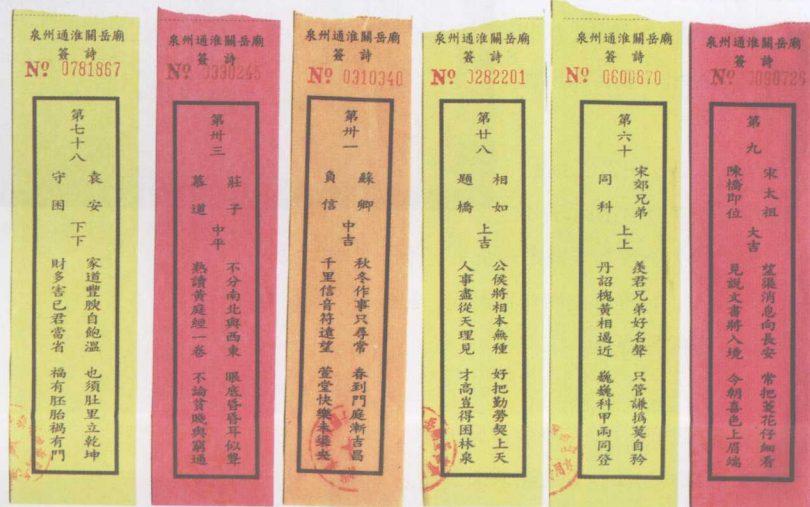 泉州通淮關岳廟
簽詩
Nº 0781867
第七十八
袁安
守困
下下
家道豐腴自飽溫 也須肚里立乾坤
財多害己君當省 福有胚胎禍有門
泉州通淮關岳廟
簽詩
Nº 0330245
第卅三
莊子
慕道
中平
不分南北與西東 眼底昏昏耳似聾
熟讀黃庭經一卷 不論貧賤與窮通
泉州通淮關岳廟
簽詩
Nº 0310340
第卅一
蘇卿
負信
中吉
秋冬作事只尋常 春到門庭漸吉昌
千里信音符遠望 萱堂快樂未渠央
泉州通淮關岳廟
簽詩
Nº 0282201
第廿八
相如
題橋
上吉
公侯將相本無種 好把勤勞契上天
人事盡從天理見 才高豈得困林泉
泉州通淮關岳廟
簽詩
Nº 0600870
第六十
宋郊兄弟
同科
上上
羨君兄弟好名聲 只管謙撝莫自矜
丹詔槐黃相逼近 巍巍科甲兩同登
泉州通淮關岳廟
簽詩
Nº
第九
宋太祖
陳橋即位
大吉
望渠消息向長安 常把菱花仔細看
見說文書將入境 今朝喜色上眉端